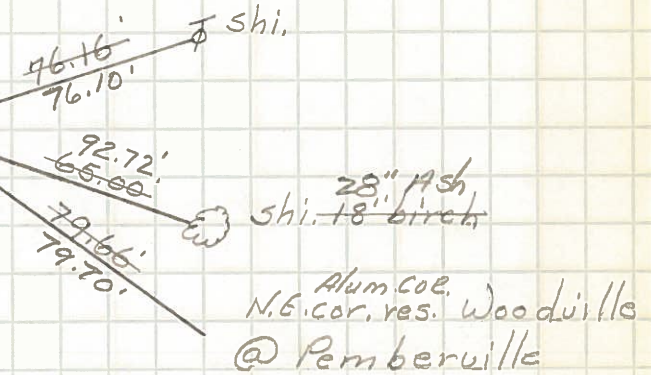 shi.
76.16'
76.10'
92.72'
65.00'
28" Ash
shi. 18" birch
79.66'
79.70'
Alum. coe.
N.E. cor. res. Woodville
@ Pemberville